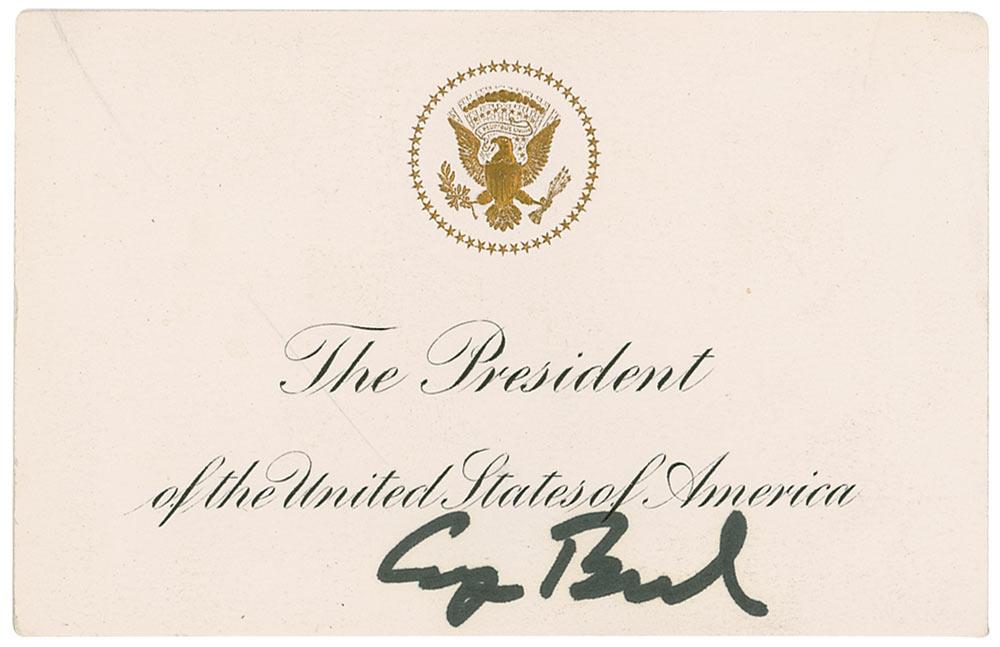 E PLURIBUS UNUM
The President
of the United States of America
George Bush